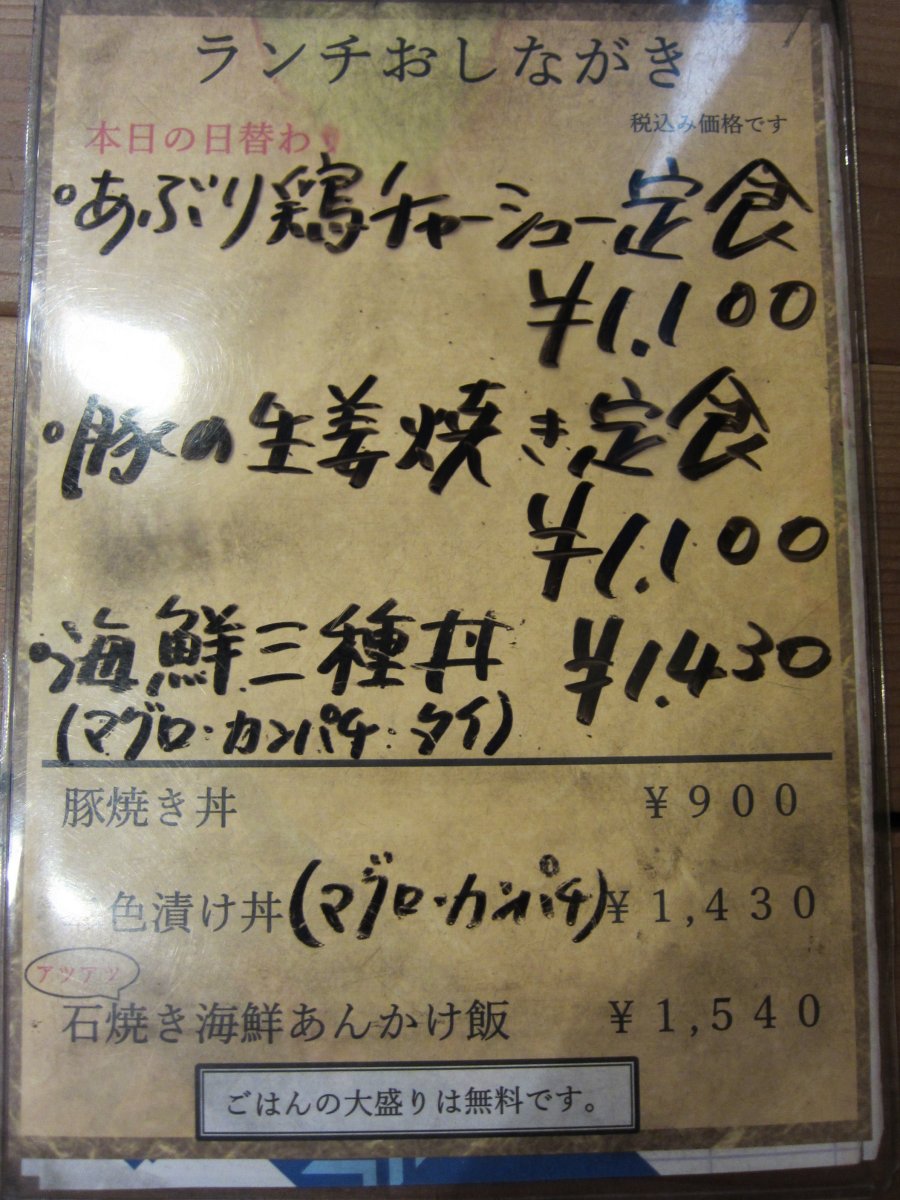 ランチおしながき
税込み価格です
本日の日替わり
・あぶり鶏チャーシュー定食
¥1,100
・豚の生姜焼き定食
¥1,100
・海鮮三種丼 ¥1,430
(マグロ・カンパチ・タイ)
豚焼き丼 ¥900
色漬け丼(マグロ・カンパチ) ¥1,430
アツアツ
石焼き海鮮あんかけ飯 ¥1,540
ごはんの大盛りは無料です。